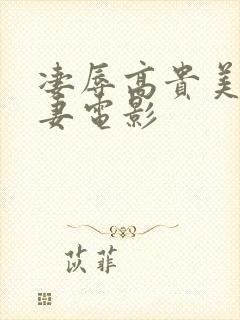 凄辱高貴美
妻電影
苡菲